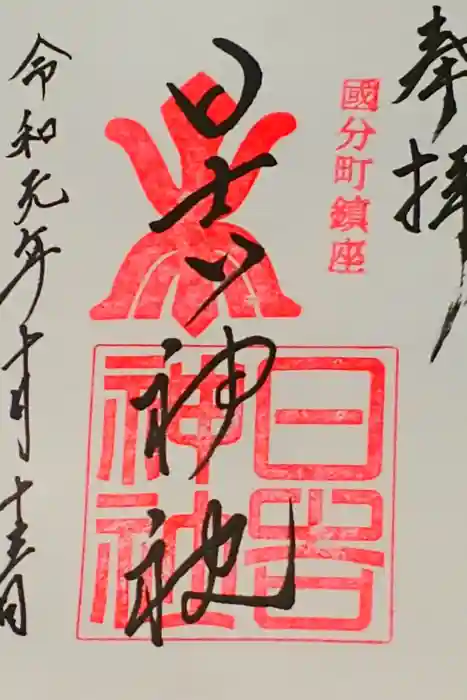 奉拝
國分町鎮座
日吉神社
日吉
神社
令和元年十月